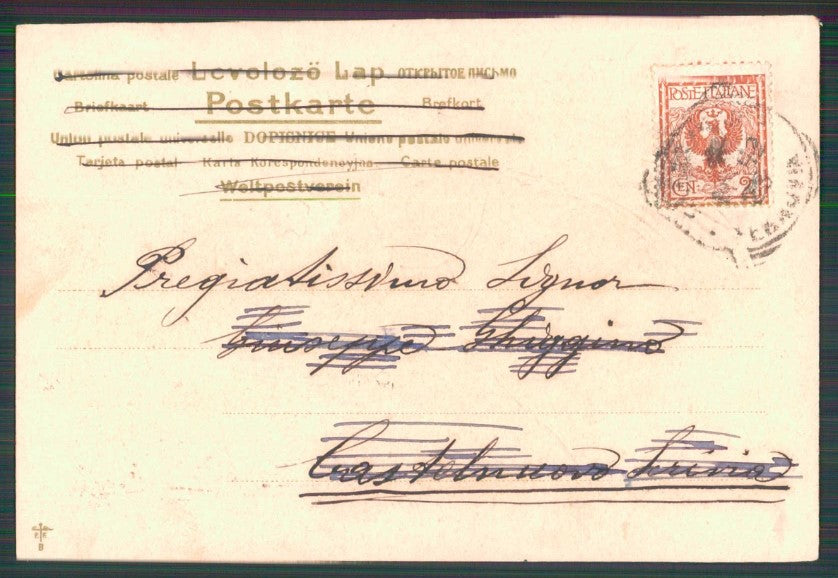 Cartolina postale Levelező Lap ОТКРЫТОЕ ПИСЬМО
Briefkaart Postkarte Brefkort
Union postale universelle DOPISNICE Unione postale universale
Tarjeta postal Karta Korespondencyjna Carte postale
Weltpostverein
POSTE ITALIANE
CEN. 2
Pregiatissimo Signor
Giuseppe Ghiggino
Castelnuovo Scrivia
B